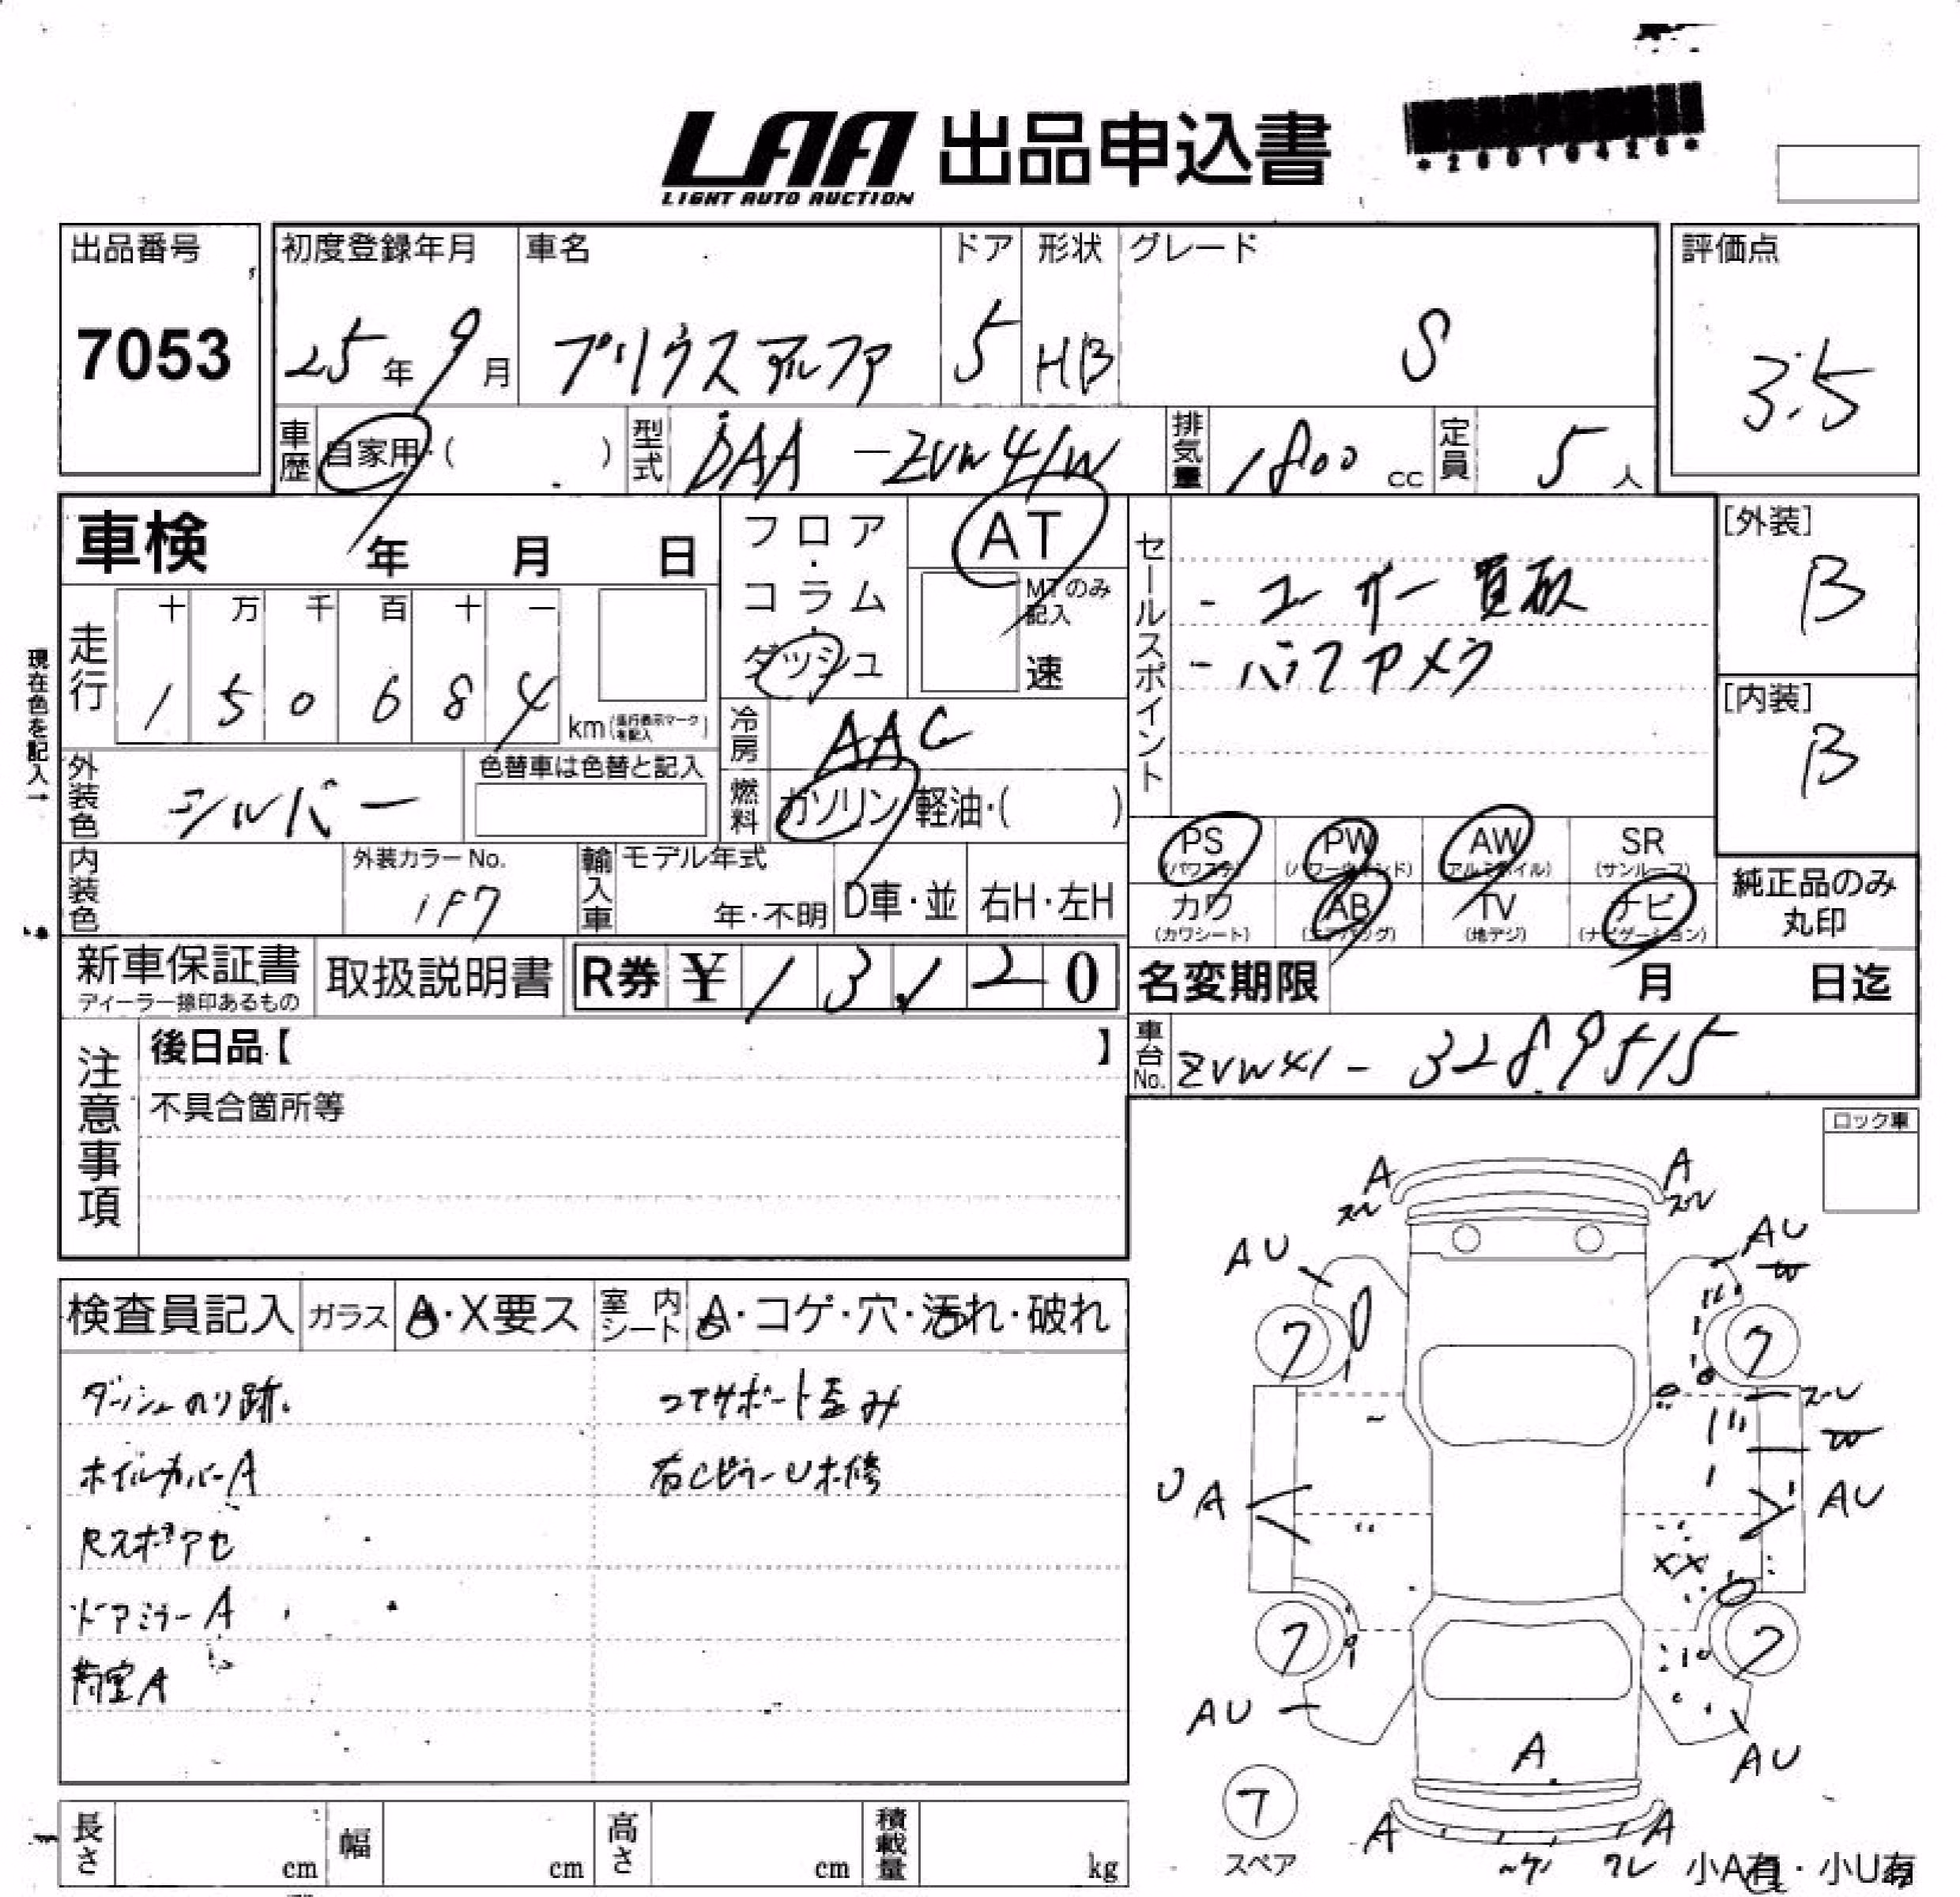 LAA 出品申込書
LIGHT AUTO AUCTION
出品番号
7053
初度登録年月
25年9月
車名
プリウスアルファ
ドア
5
形状
HB
グレード
S
評価点
3.5
車歴 自家用・( )
型式 DAA-ZVW41W
排気量 1800 cc
定員 5人
車検 年 月 日
フロア・コラム・ダッシュ
AT
MTのみ記入
速
セールスポイント
- ユーザー買取
- バックカメラ
[外装]
B
[内装]
B
現在色を記入→
走行
十 万 千 百 十 一
1 5 0 6 8 4
km(走行表示マークを記入)
冷房 AAC
燃料 ガソリン・軽油・( )
外装色 シルバー
色替車は色替と記入
PS (パワステ)
PW (パワーウィンド)
AW (アルミホイル)
SR (サンルーフ)
カワ (カワシート)
AB (エアバッグ)
TV (地デジ)
ナビ (ナビゲーション)
純正品のみ丸印
内装色
外装カラーNo.
1F7
輸入車
モデル年式
年・不明
D車・並
右H・左H
新車保証書
ディーラー捺印あるもの
取扱説明書
R券 ¥ 13,120
名変期限 月 日迄
車台No. ZVW41-3289515
注意事項
後日品【 】
不具合箇所等
ロック車
検査員記入
ガラス A・X要ス
室内シート A・コゲ・穴・汚れ・破れ
ダッシュのり跡
コアサポート歪み
ホイルカバーA
右CピラーU未修
Rスポアセ
ドアミラーA
荷室A
A
スレ
A
スレ
AU
AU
W
7
7
スレ
W
UA
AU
XX
7
7
AU
AU
A
7
スペア
A
A
ワレ
小A有・小U有
長さ cm
幅 cm
高さ cm
積載量 kg